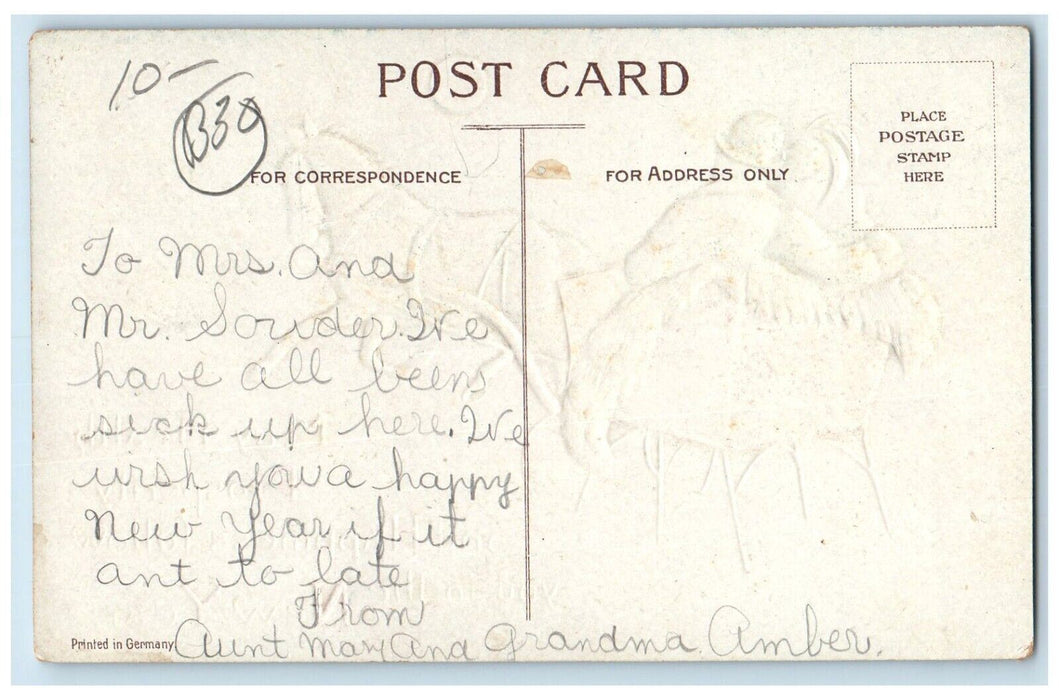 10-
B30
POST CARD
PLACE
POSTAGE
STAMP
HERE
FOR CORRESPONDENCE
FOR ADDRESS ONLY
To Mrs. And
Mr. Souder. We
have all been
sick up here. We
wish you a happy
New Year if it
ant to late
From
Aunt Mary And Grandma Amber.
Printed in Germany